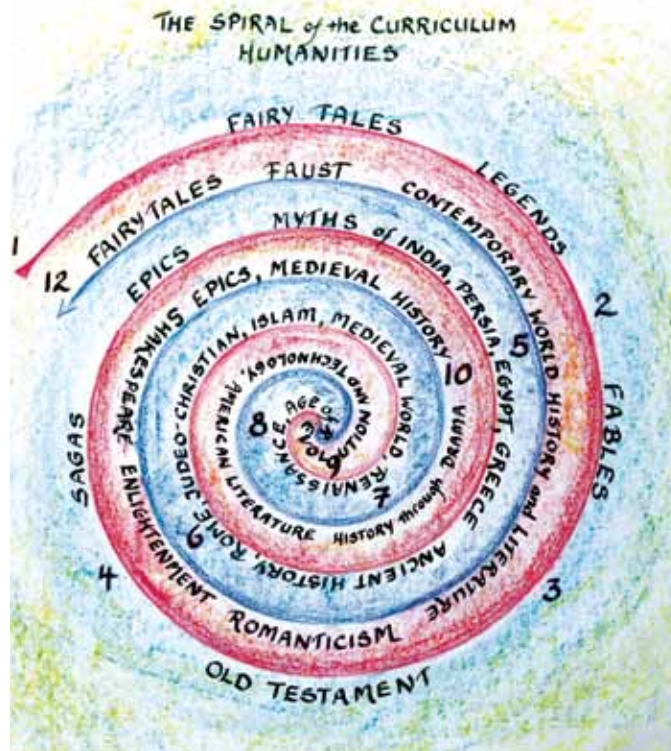 THE SPIRAL of the CURRICULUM
HUMANITIES
1
FAIRY TALES
LEGENDS
2
FABLES
3
OLD TESTAMENT
4
SAGAS
EPICS
MYTHS of INDIA, PERSIA, EGYPT, GREECE
5
ANCIENT HISTORY, ROME, JUDEO-CHRISTIAN, ISLAM, MEDIEVAL WORLD, RENAISSANCE, AGE OF
6
7
8
9
REVOLUTION AND TECHNOLOGY, AMERICAN LITERATURE HISTORY through DRAMA
10
MEDIEVAL HISTORY
EPICS,
SHAKESPEARE ENLIGHTENMENT ROMANTICISM
CONTEMPORARY WORLD HISTORY and LITERATURE
FAUST
FAIRY TALES
12